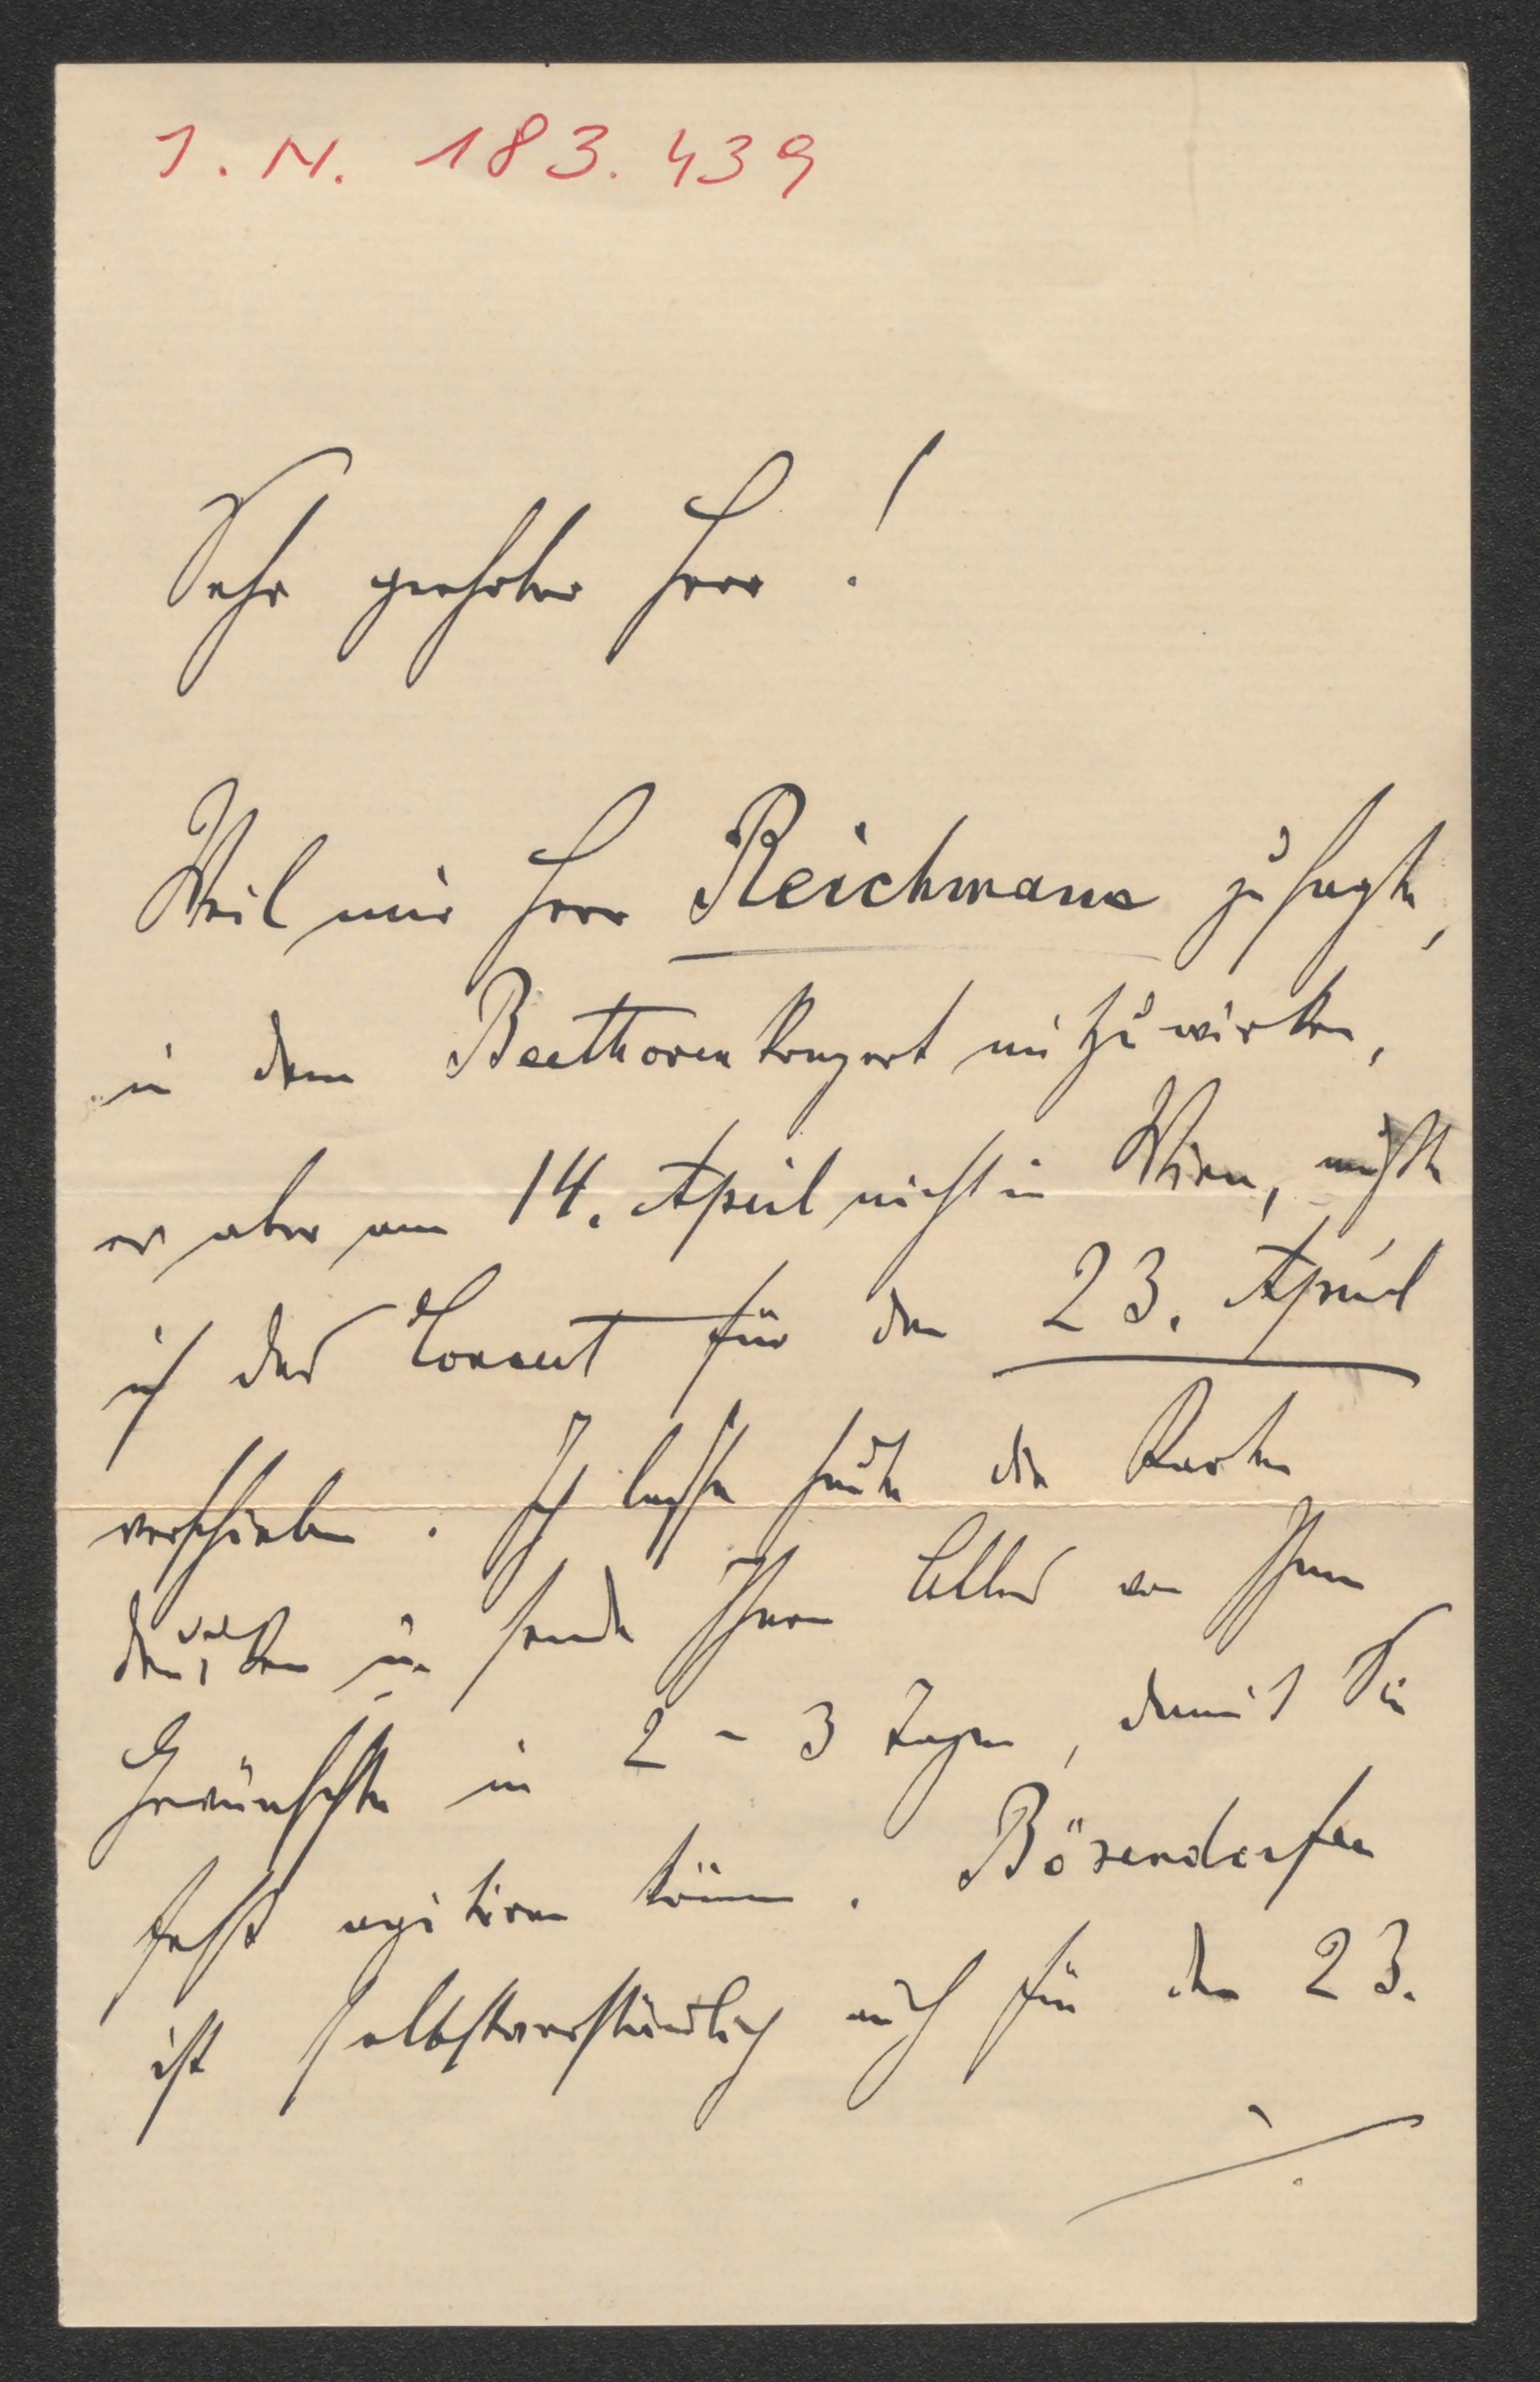 I. N. 183.439
Sehr geehrter Herr !
Weil mir Herr Reichmann zusagte,
in dem Beethovenkonzert mitzuwirken,
er aber am 14. April nicht in Wien, mußte
ich das Concert für den 23. April
verschieben. Ich lasse heute die Karten
drucken u. sende Ihnen Alles von Ihnen
Gewünschte in 2 - 3 Tagen, damit Sie
fest agitiren können. Bösendorfer
ist selbstverständlich auch für den 23.